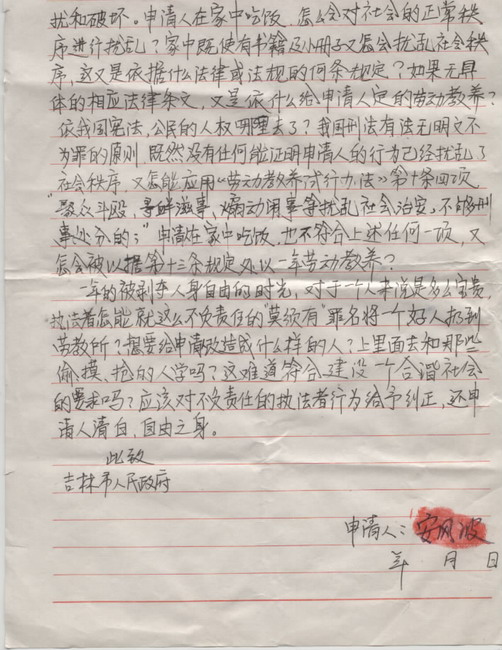 扰和破坏。申请人在家中吃饭，怎么会对社会的正常秩
序进行扰乱？家中既使有书籍及小册子又怎会扰乱社会秩
序，这又是依据什么法律或法规的何条规定？如果无具
体的相应法律条文，又是依什么给申请人定的劳动教养？
依我国宪法，公民的人权哪里去了？我国刑法有法无明文不
为罪的原则，既然没有任何能证明申请人的行为已经扰乱了
社会秩序，又怎能应用《劳动教养试行办法》第十条四项，
“聚众斗殴、寻衅滋事、煽动闹事等扰乱社会治安，不够刑
事处分的；”申请在家中吃饭，也不符合上述任何一项，又
怎会被以据第十三条规定处以一年劳动教养？
一年的被剥夺人身自由的时光，对于一个人来说是多么宝贵，
执法者怎能就这么不负责任的“莫须有”罪名将一个好人扔到
劳教所？想要给申请改造成什么样的人？上里面去和那些
偷、摸、抢的人学吗？这难道符合建设一个合谐社会
的要求吗？应该对不负责任的执法者行为给予纠正，还申
请人清白，自由之身。
此致
吉林市人民政府
申请人：安凤波
年 月 日